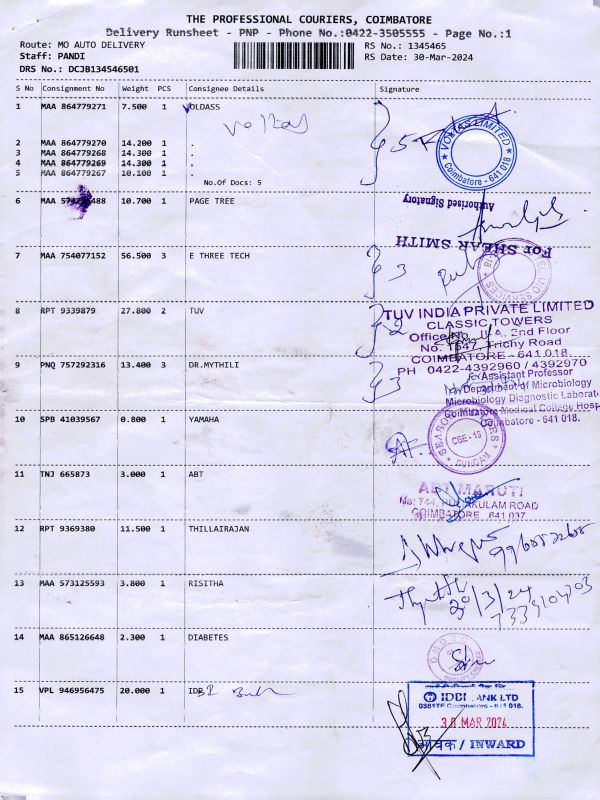 THE PROFESSIONAL COURIERS, COIMBATORE
Delivery Runsheet - PNP - Phone No.:0422-3505555 - Page No.:1
Route: MO AUTO DELIVERY
RS No.: 1345465
Staff: PANDI
RS Date: 30-Mar-2024
DRS No.: DCJB134546501
S No Consignment No Weight PCS Consignee Details Signature
1 MAA 864779271 7.500 1 VOLDASS
Voltas
VOLTAS LIMITED
Coimbatore - 641 018.
2 MAA 864779270 14.200 1 .
3 MAA 864779268 14.300 1 .
4 MAA 864779269 14.300 1 .
5 MAA 864779267 10.100 1 .
No.Of Docs: 5
5
6 MAA 488 10.700 1 PAGE TREE
Authorised Signatory
For SHEAR SMITH
7 MAA 754077152 56.500 3 E THREE TECH
3
8 RPT 9339879 27.800 2 TUV
2
TUV INDIA PRIVATE LIMITED
CLASSIC TOWERS
Office No. 2nd Floor
No. 1547, Trichy Road
COIMBATORE - 641 018.
PH 0422-4392960 / 4392970
9 PNQ 757292316 13.400 3 DR.MYTHILI
3
Assistant Professor
Department of Microbiology
Microbiology Diagnostic Laborat
Coimbatore Medical College Hosp
Coimbatore - 641 018.
10 SPB 41039567 0.800 1 YAMAHA
CBE-18
SUNGAM
11 TNJ 665873 3.000 1 ABT
ABT MARUTI
No: 744, PULIAKULAM ROAD
COIMBATORE 641 037
12 RPT 9369380 11.500 1 THILLAIRAJAN
13 MAA 573125593 3.800 1 RISITHA
30/3/24
14 MAA 865126648 2.300 1 DIABETES
15 VPL 946956475 20.000 1 IDBI
IDBI BANK LTD
Coimbatore - 641 018.
30 MAR 2024
आवक / INWARD